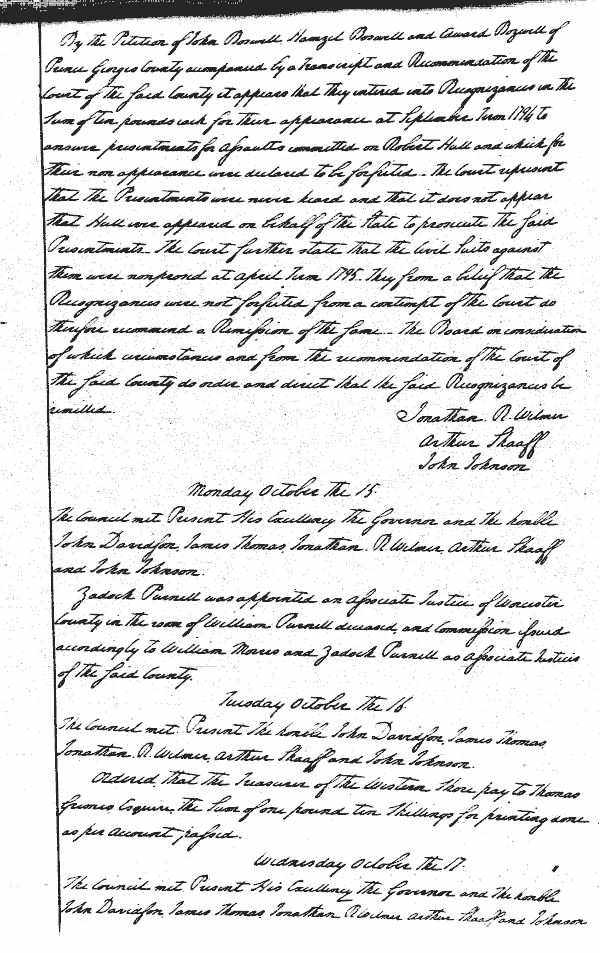 By the Petition of John Boswell Hamzil Boswell and Edward Bozwell of
Prince Georges County accompanied by a Transcript and Recommendation of the
Court of the said County it appears that they entered into Recognizances in the
Sum of ten pounds each for their appearance at September Term 1794 to
answer presentments for assaults committed on Robert Hall and which for
their non appearance were declared to be forfeited – the Court represent
that the Presentments were never heard and that it does not appear
that Hall ever appeared on behalf of the State to prosecute the said
Presentments – The Court further state that the Civil Suits against
them were nonprosed at April Term 1795. They from a belief that the
Recognizances were not forfeited from a contempt of the Court do
therefore recommend a Remission of the same – The Board on consideration
of which circumstances and from the recommendation of the Court of
the said County do order and direct that the said Recognizances be
remitted.
Jonathan R. Wilmer
Arthur Shaaff
John Johnson
Monday October the 15
The Council met Present His Excellency the Governor and the honble
John Davidson, James Thomas, Jonathan R Wilmer, Arthur Shaaff
and John Johnson.
Zadock Purnell was appointed an Associate Justice of Worcester
County in the room of William Purnell deceased, and Commission issued
accordingly to William Morris and Zadock Purnell as Associate Justices
of the said County.
Tuesday October the 16
The Council met. Present the honble John Davidson, James Thomas,
Jonathan R. Wilmer, Arthur Shaaff and John Johnson.
Ordered that the Treasurer of the Western Shore pay to Thomas
Grieves Esquire, the Sum of one pound ten Shillings for printing done
as per Account passed.
Wednesday October the 17.
The Council met Present His Excellency the Governor and the honble
John Davidson, James Thomas, Jonathan R Wilmer Arthur Shaaff and Johnson